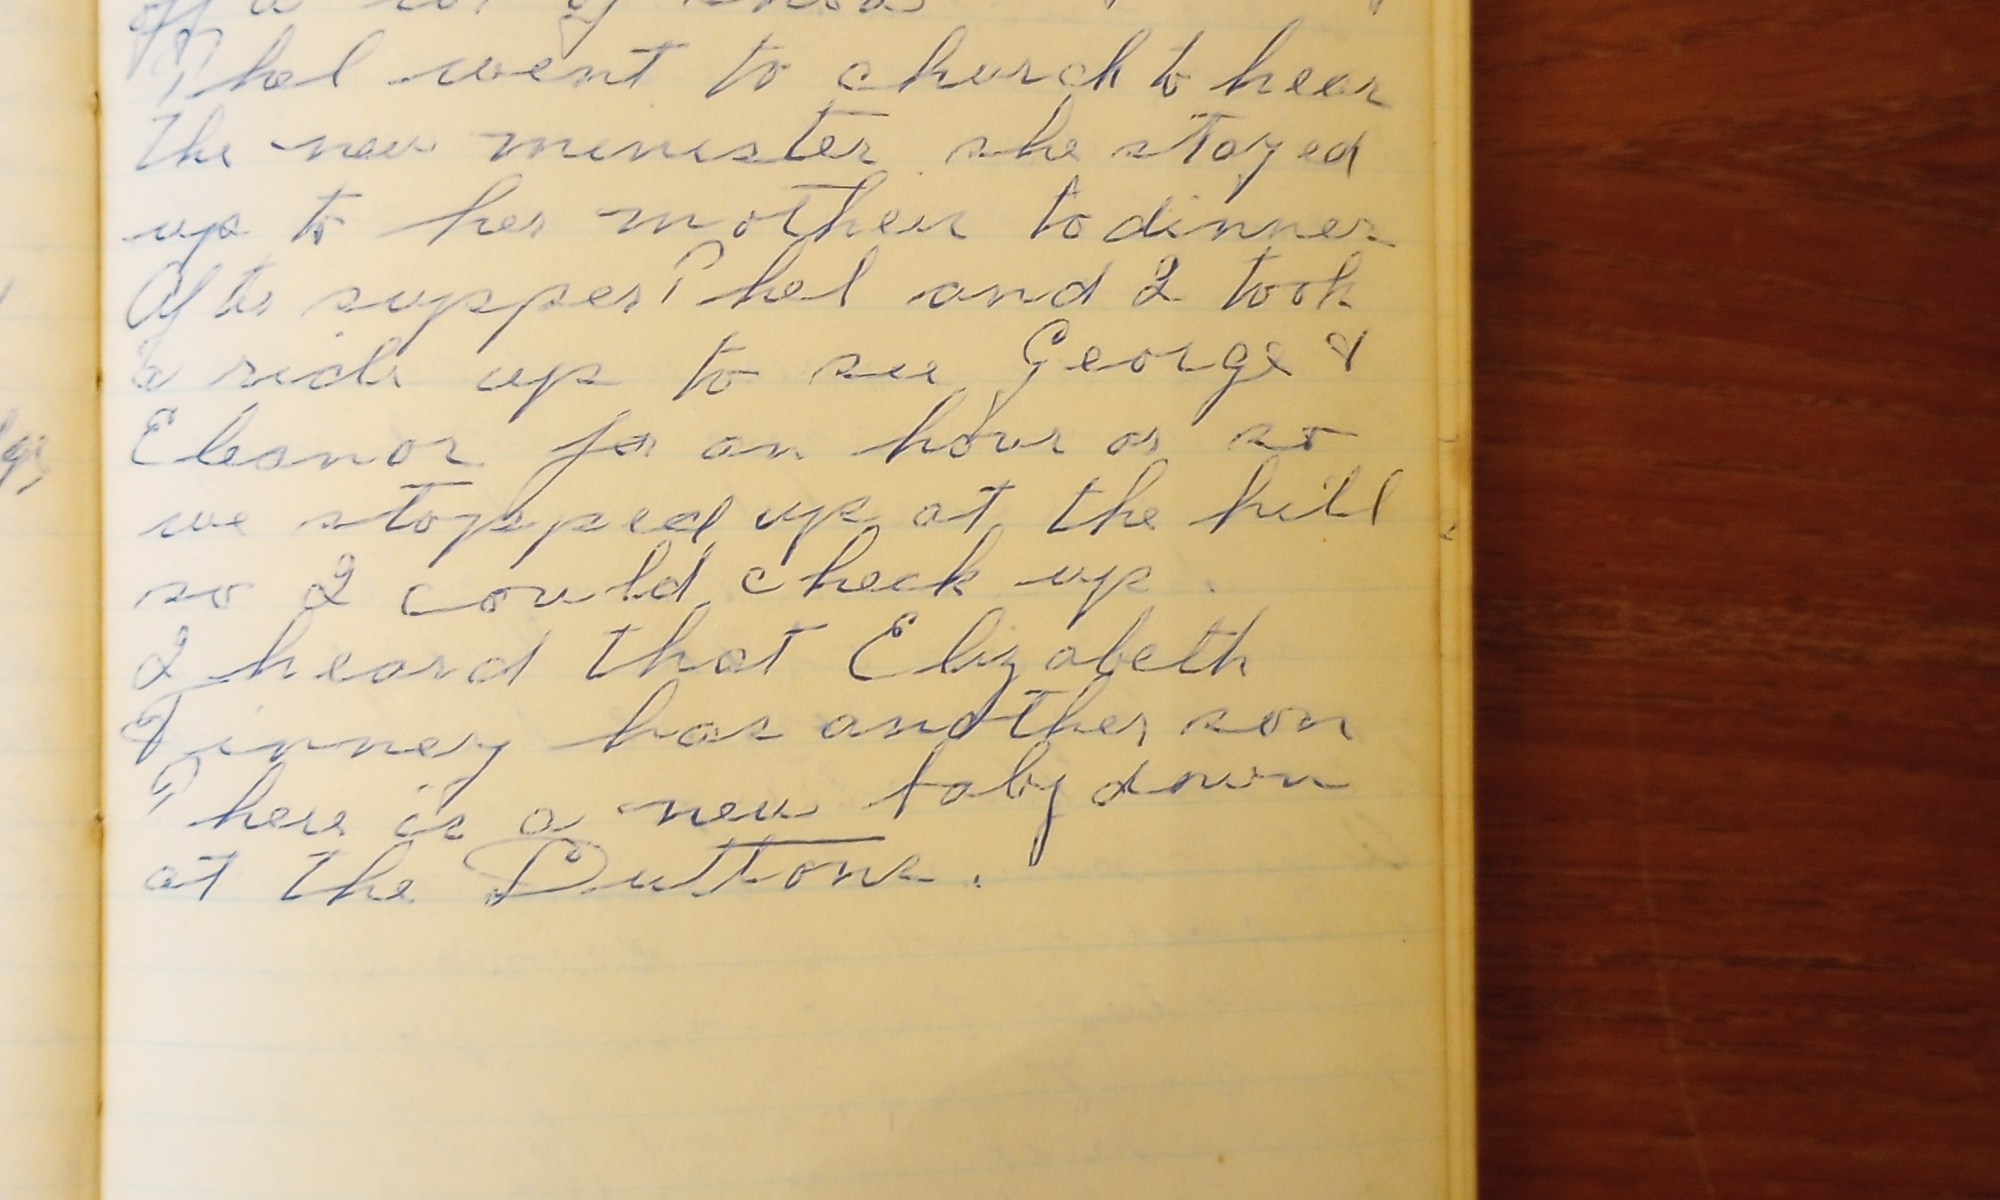 off a lot of
Phel went to church to hear
the new menester she stayed
up to her mother to dinner
After supper Phel and I took
a ride up to see George &
Eleanor for an hour or so
we stopped up at the hill
so I could check up.
I heard that Elizabeth
Tinney has another son
There is a new baby down
at the Duttons.